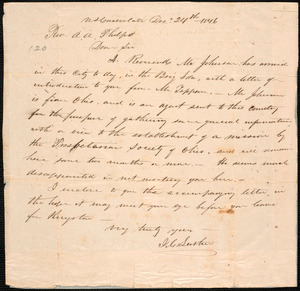 US Consulate Dec. 24th 1846
Rev. A. A. Phelps
120
Dear Sir
A Reverend Mr Johnson has arrived
in this City to day, in the Brig, with a letter of
introduction to you from Mr Tappan. Mr Johnson
is from Ohio, and is an agent sent to this Country
for the purpose of gathering some general information
with a view to the establishment of a mission by
the Presbyterian Society of Ohio, and will remain
here some two months or more. He seems much
disappointed in not meeting you here.
I enclose to you the accompanying letter, in
the hope it may meet your eye before you leave
for Kingston
Very truly yours